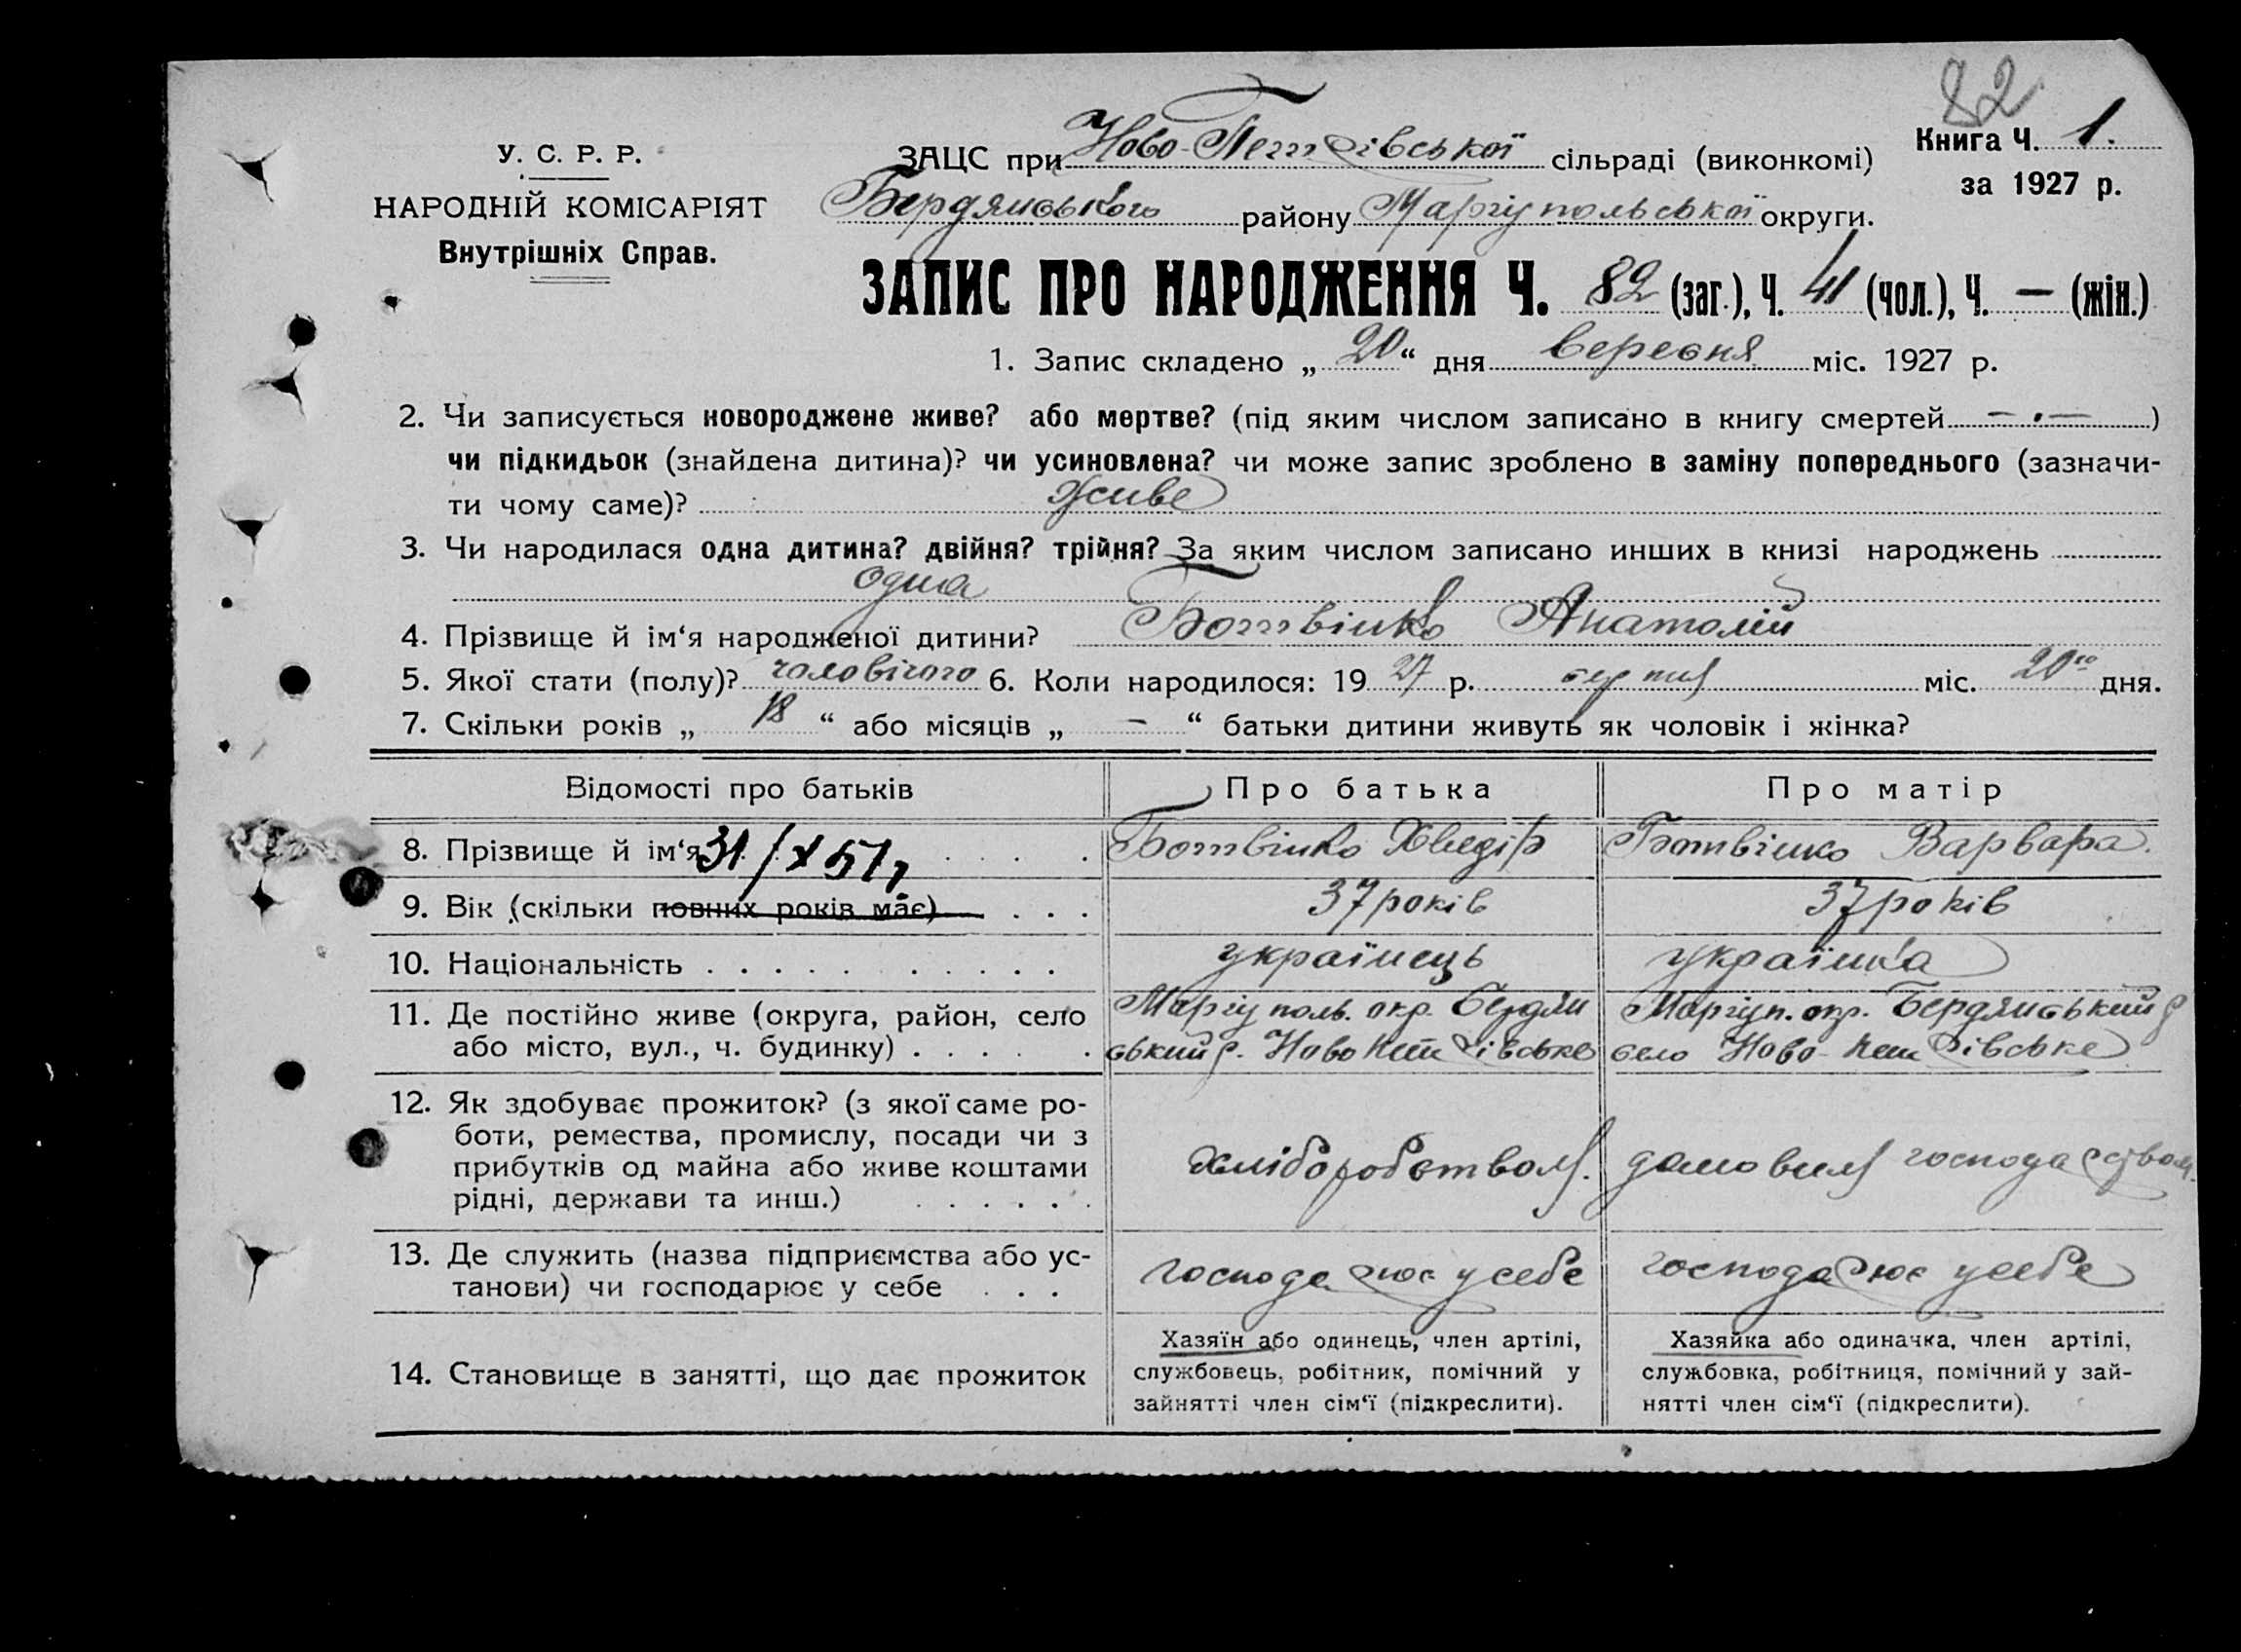 82
У. С. Р. Р.
НАРОДНІЙ КОМІСАРІЯТ
Внутрішніх Справ.
ЗАЦС при Ново-Петрівської сільраді (виконкомі)
Бердянського району Маріупольської округи.
Книга Ч. 1.
за 1927 р.
ЗАПИС ПРО НАРОДЖЕННЯ Ч. 82 (заг.), Ч. 41 (чол.), Ч. — (жін.)
1. Запис складено „ 20 “ дня вересня міс. 1927 р.
2. Чи записується новороджене живе? або мертве? (під яким числом записано в книгу смертей — . — )
чи підкидьок (знайдена дитина)? чи усиновлена? чи може запис зроблено в заміну попереднього (зазначи-
ти чому саме)? живе
3. Чи народилася одна дитина? двійня? трійня? За яким числом записано инших в книзі народжень
одна
4. Прізвище й ім‘я народженої дитини? Ботвінко Анатолій
5. Якої стати (полу)? чоловічого 6. Коли народилося: 1927 р. серпня міс. 20го дня.
7. Скільки років „ 18 “ або місяців „ — “ батьки дитини живуть як чоловік і жінка?
Відомості про батьків Про батька Про матір
8. Прізвище й ім‘я Ботвінко Хведір Ботвінко Варвара.
31/X 51г.
9. Вік (скільки повних років має) 37 років 37 років
10. Національність українець українка
11. Де постійно живе (округа, район, село
або місто, вул., ч. будинку)
Маріуполь. окр. Бердян
ський р. Ново Петрівське
Маріуп. окр. Бердянський р
село Ново-Петрівське
12. Як здобуває прожиток? (з якої саме ро-
боти, ремества, промислу, посади чи з
прибутків од майна або живе коштами
рідні, держави та инш.)
Хліборобством.
домовим господарством.
13. Де служить (назва підприємства або ус-
танови) чи господарює у себе
господарює у себе
господарює у себе
14. Становище в занятті, що дає прожиток
Хазяїн або одинець, член артілі,
службовець, робітник, помічний у
зайнятті член сім‘ї (підкреслити).
Хазяйка або одиначка, член артілі,
службовка, робітниця, помічний у зай-
нятті член сім‘ї (підкреслити).